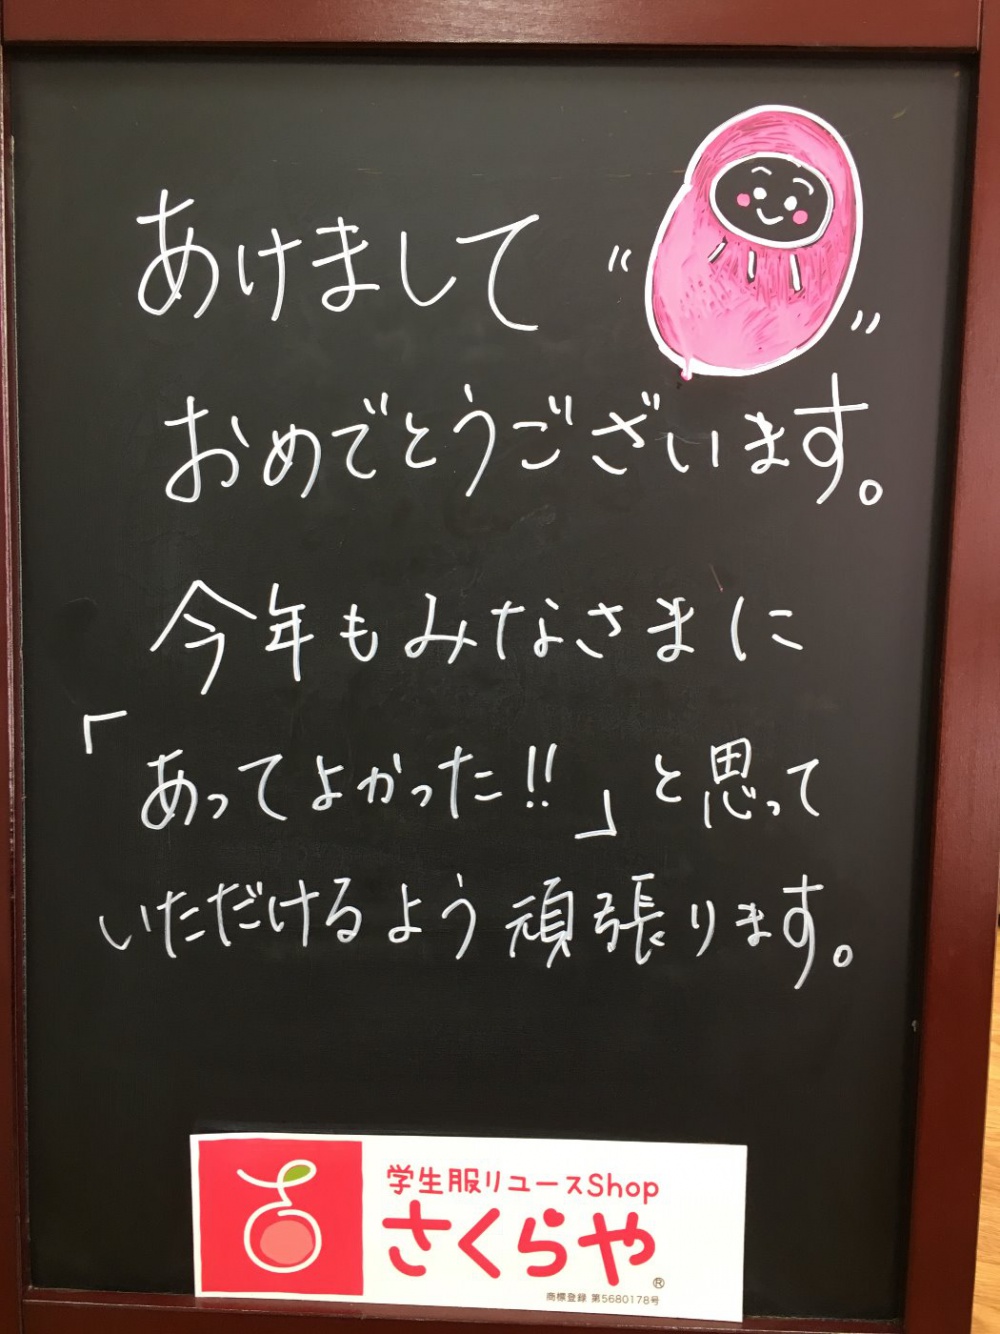 あけまして
おめでとうございます。
今年もみなさまに
「あってよかった!!」と思って
いただけるよう頑張ります。
学生服リユースShop
さくらや®
商標登録 第5680178号